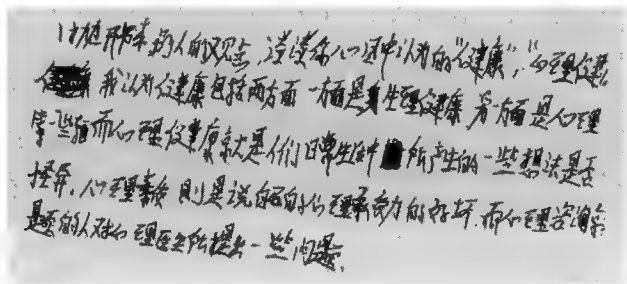 讨她开始来的人的观念,谈谈你心运中认为的“健康”,“心理健康
我认为健康包括两方面 一方面是生理健康 另一方面是心理
一些指而心理健康就是人们日常生活中所产生的一些想法是否
怪异。心理素质则是说的的心理承受力的好坏。而心理咨询就
是的人对心理医生所提出一些问题。